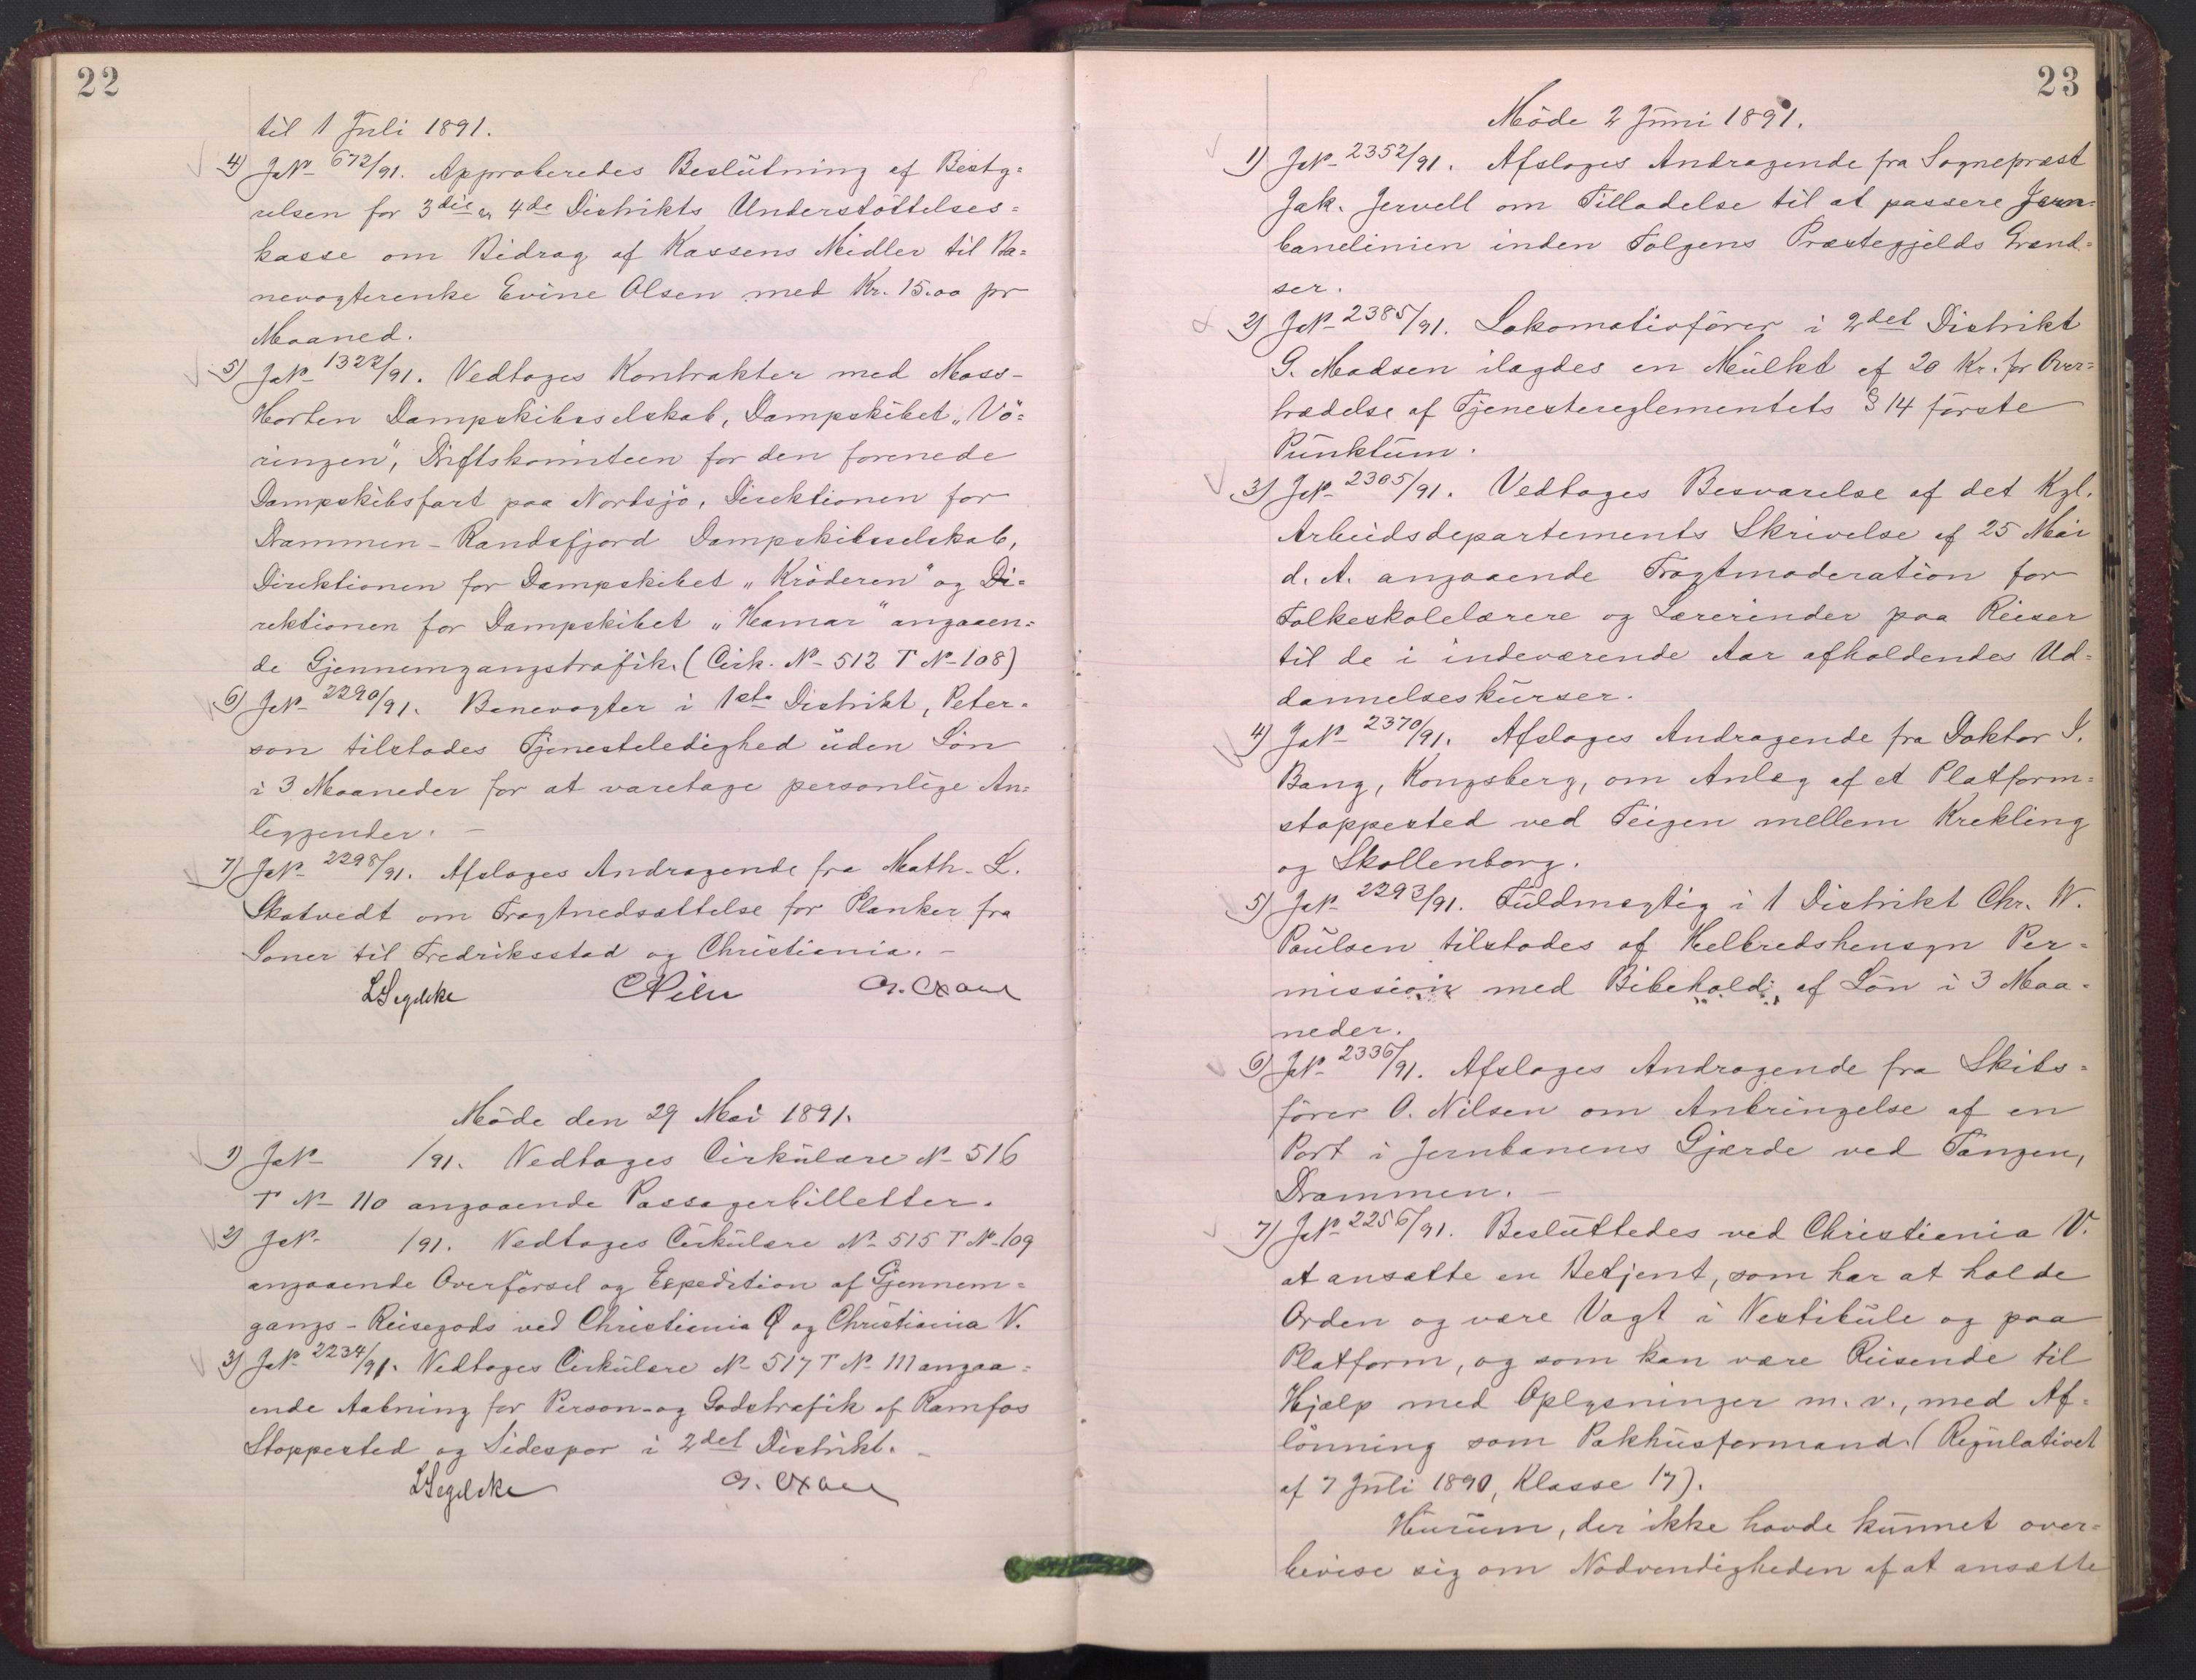 22
til 1 Juli 1891.
4) JN- 672/91. Approberedes Beslutning af Besty=
relsen for 3die & 4de Distrikts Understöttelses=
kasse om Bidrag af Kassens Midler til Ba=
nevogterenke Evine Olsen med Kr. 15.00 pr
Maaned.
5) JN- 1322/91. Vedtoges Kontrakter med Moss-
Horten Dampskibsselskab, Dampskibet „Vö=
ringen", Driftskomiteen for den forenede
Dampskibsfart paa Nordsjö, Direktionen for
Drammen-Randsfjord Dampskibsselskab,
Direktionen for Dampskibet „Kröderen" og Di=
rektionen for Dampskibet „Hamar" angaaen=
de Gjennemgangstrafik. (Cirk. N- 512 T N- 108)
6) JN- 2290/91. Banevogter i 1ste Distrikt, Peter=
son tilstodes Tjenesteledighed uden Lön
i 3 Maaneder for at varetage personlige An=
liggender. -
7) JN- 2298/91. Afsloges Andragende fra Math. L.
Skatvedt om Fragtnedsættelse for Planker fra
Soner til Fredriksstad og Christiania. -
LSegelcke CPihl
Möde den 29 Mai 1891.
1) JN- /91. Vedtoges Cirkulære N- 516
T N- 110 angaaende Passagerbilletter.
2) JN- /91. Vedtoges Cirkulære N- 515 T N- 109
angaaende Overförsel og Expedition af Gjennem=
gangs-Reisegods ved Christiania Ø og Christiania V.
3) JN- 2234/91. Vedtoges Cirkulære N- 517 T N- 111 angaa=
ende Aabning for Person- og Godstrafik af Ramfos
Stoppested og Sidespor i 2det Distrikt. -
LSegelcke
23
Möde 2 Juni 1891.
1) JN- 2352/91. Afsloges Andragende fra Sognepræst
Jak. Jervell om Tilladelse til at passere Jern=
banelinien inden Solgens Præstegjelds Grænd=
ser.
2) JN- 2385/91. Lokomotivförer i 2det Distrikt
G. Madsen ilagdes en Mulkt af 20 Kr. for Over=
trædelse af Tjenestereglementets § 14 förste
Punktum.
3) JN- 2305/91. Vedtoges Besvarelse af det Kgl.
Arbeidsdepartements Skrivelse af 25 Mai
d. A. angaaende Fragtmoderation for
Folkeskolelærere og Lærerinder paa Reiser
til de i indeværende Aar afholdendes Ud=
dannelseskurser.
4) JN- 2370/91. Afsloges Andragende fra Doktor I.
Bang, Kongsberg, om Anlæg af et Platform=
stoppested ved Teigen mellem Krekling
og Skollenborg.
5) JN- 2293/91. Fuldmægtig i 1 Distrikt Chr. W.
Paulsen tilstodes af Helbredshensyn Per=
mission med Bibehold af Lön i 3 Maa=
neder.
6) JN- 2336/91. Afsloges Andragende fra Skibs=
förer O. Nilsen om Anbringelse af en
Port i Jernbanens Gjærde ved Tangen,
Drammen. -
7) JN- 2256/91. Besluttedes ved Christiania V.
at ansætte en Betjent, som har at holde
Orden og være Vagt i Vestibule og paa
Platform, og som kan være Reisende til
Hjælp med Oplysninger m. v., med Af=
lönning som Pakhusformand (Regulativet
af 7 Juli 1890, Klasse 17).
Huium, der ikke havde kunnet over=
bevise sig om Nödvendigheden af at ansætte